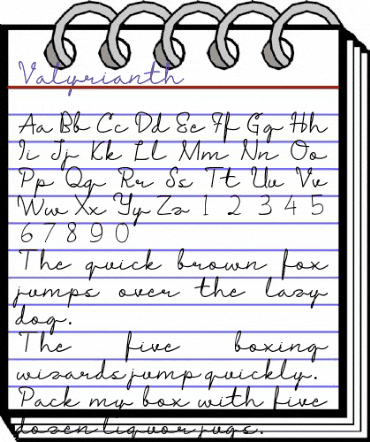 Valyrianth
Aa Bb Cc Dd Ee Ff Gg Hh
Ii Jj Kk Ll Mm Nn Oo
Pp Qq Rr Ss Tt Uu Vv
Ww Xx Yy Zz 1 2 3 4 5
6 7 8 9 0
The quick brown fox
jumps over the lazy
dog.
The five boxing
wizards jump quickly.
Pack my box with five
dozen liquor jugs.